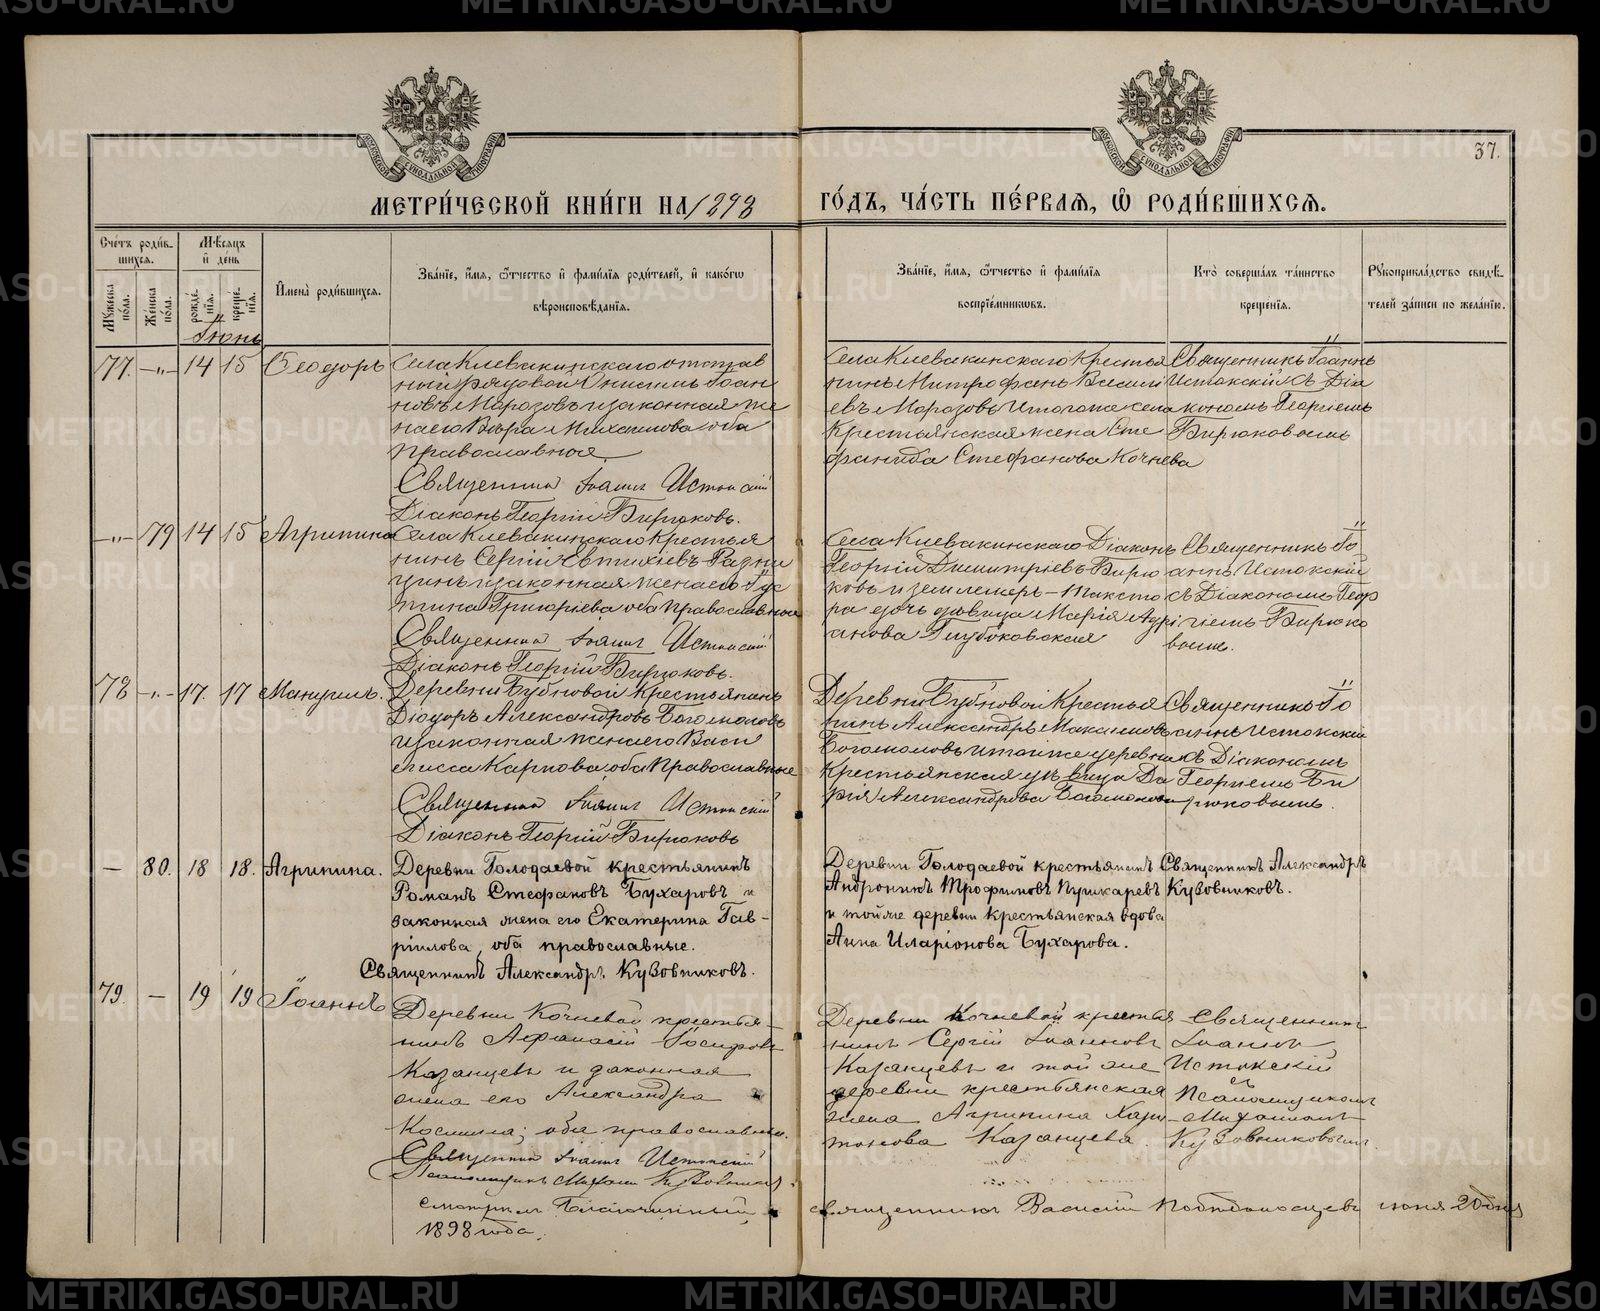 METRIKI.GASO-URAL.RU
МОСКОВСКОЙ СѴНОДАЛЬНОЙ ТИПОГРАФІИ
МОСКОВСКОЙ СѴНОДАЛЬНОЙ ТИПОГРАФІИ
37.
МЕТРИ́ЧЕСКОЙ КНИ́ГИ НА 1898
ГО́ДЪ, ЧА́СТЬ ПЕ́РВАЯ, Ѽ РОДИ́ВШИХСЯ.
Сче́тъ роди́в-
шихся.
Мужеска по́ла.
Же́нска по́ла.
Мѣ́сяцъ
и҆ де́нь
рожде́нїя.
креще́нїя.
И҆мена̀ роди́вшихся.
Зва́нїе, и҆́мя, ѻ҆́тчество и҆ фами́лїя роди́телей, и҆ како́гѡ
вѣроисповѣ́данїя.
Зва́нїе, и҆́мя, ѻ҆́тчество и҆ фами́лїя
воспрїе́мникѡвъ.
Кто̀ соверша́лъ та́инство
креще́нїя.
Рукоприкла́дство свидѣ́-
телей за́писи по жела́нїю.
Іюнь
77. -„- 14 15 Ѳеодоръ
Села Клевакинскаго отстав
ный рядовой Онисимъ Іоан
новъ Морозовъ и законная же
на его Вѣра Михаилова оба
православные
Священник Іоанн Истокский
Діаконъ Георгій Бирюковъ.
Села Клевакинскаго Крестья
нинъ Митрофанъ Василі
евъ Морозовъ и тогоже села
Крестьянская жена Сте
фанида Стефанова Кочнева
Священникъ Іоаннъ
Истокскій съ Діа
кономъ Георгіемъ
Бирюковымъ
-„- 79 14 15 Агрипина
Села Клевакинскаго Крестья
нинъ Сергій Евтихіевъ
и законная жена его Іус
тина Григоріева оба Православные
Священник Іоанн Истокский
Діаконъ Георгій Бирюковъ.
Села Клевакинскаго Діаконъ
Георгій Димитріевъ Бирю
ковъ и землемеръ-таксато
ра дочь дѣвица Марія Адрі
анова Глубоковская
Священникъ Іо
аннъ Истокскій
съ Діакономъ Геор
гіемъ Бирюко
вымъ.
78 -„- 17. 17 Мануилъ.
Деревни Бубновой Крестьянинъ
Діодоръ Александровъ Богомоловъ
и законная жена его Васи
лисса Карпова, оба Православные
Священник Іоанн Истокский
Діаконъ Георгій Бирюковъ
Деревни Бубновой Крестья
нинъ Александръ Максимовъ
Богомоловъ и тойже деревни
Крестьянская дѣвица Да
рія Александрова Богомолова
Священникъ Іо
аннъ Истокскій
съ Діакономъ
Георгіемъ Би
рюковымъ.
— 80. 18 18. Агрипина.
Деревни Голодаевой крестьянинъ
Романъ Стефановъ Бухаровъ и
законная жена его Екатерина Гав-
ріилова, оба православные.
Священникъ Александръ Кузовниковъ.
Деревни Голодаевой крестьянинъ
Андроникъ Трофимовъ Пушкаревъ
и той же деревни крестьянская вдова
Анна Иларіонова Бухарова.
Священникъ Александръ
Кузовниковъ.
79. — 19 19 Іоаннъ
Деревни Кочневой крестья-
нинъ Афанасій Іосифовъ
Казанцевъ и законная
жена его Александра
Космина; оба православны.
Священник Іоанн Истокский
Псаломщикъ Михаил Кузовников.
Деревни Кочневой крестья
нинъ Сергій Іоанновъ
Казанцевъ и той же
деревни крестьянская
жена Агрипина Хари-
тонова Казанцева
Священникъ
Іоаннъ
Истокскій
съ
Псаломщикомъ
Михаиломъ
Кузовниковымъ.
смотрелъ Благочинный священникъ Василій Победоносцевъ июня 20 дня
1898 года.